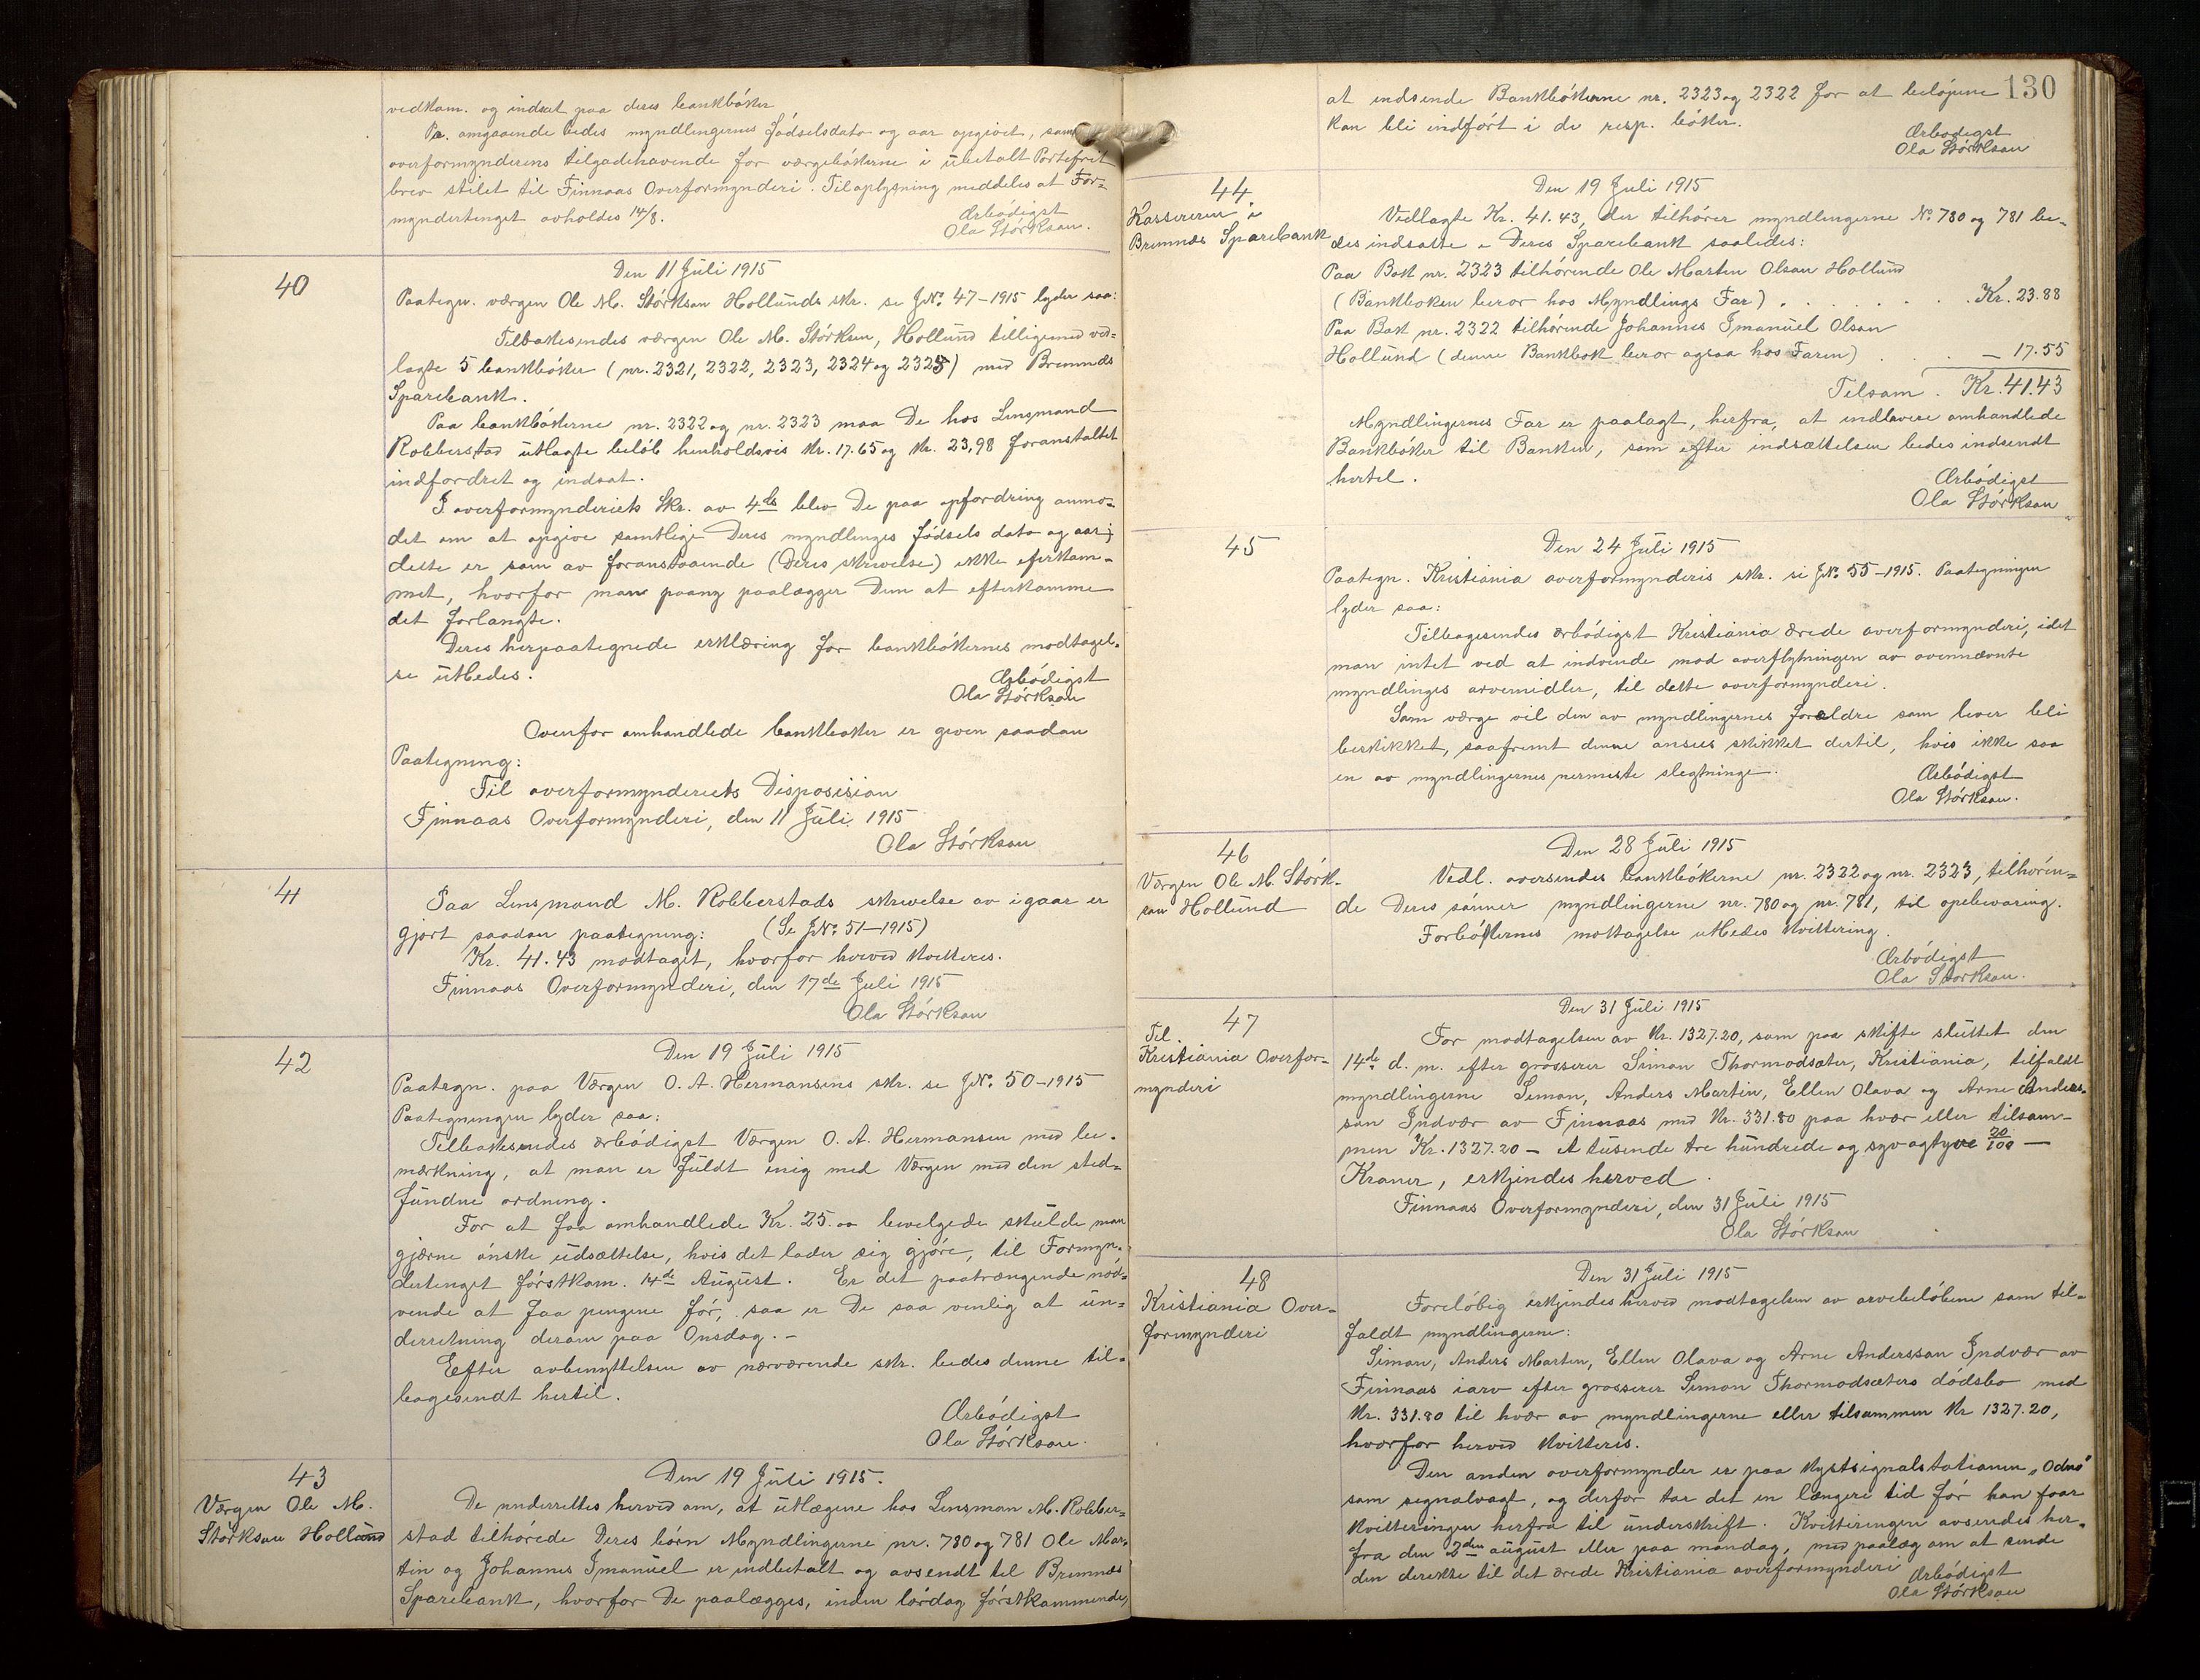 vedkom. og indsat paa deres bankbøker
Pr. omgaaende bedes myndlingernes fødselsdato og aar opgivet, samt
overformynderens tilgodehavende for værgebøkerne i ubetalt Portofrit
brev stilet til Finnaas Overformynderi. Til oplysning meddeles at For-
myndertinget avholdes 14/8.
Ærbødigst
Ola Størkson.
40
Den 11 Juli 1915
Paategn. værgen Ole M. Størkson Hollunds skr. se J.No. 47-1915 lyder saa:
Tilbakesendes værgen Ole M. Størksen, Hollund tilligemed ved-
lagte 5 bankbøker (nr. 2321, 2322, 2323, 2324 og 2325) med Bremnes
Sparebank.
Paa bankbøkerne nr. 2322 og nr. 2323 maa De hos Lensmand
Robberstad utlagte beløb henholdsvis kr. 17.65 og kr. 23,98 foranstaltet
indfordret og indsat.
I overformynderiets Skr. av 4de blev De paa opfordring anmo-
det om at opgive samtlige Deres myndlinges fødsels dato og aar;
dette er som av foranstaaende (Deres skrivelse) ikke efterkom-
met, hvorfor man paany paalægger Dem at efterkomme
det forlangte.
Deres herpaategnede erklæring for bankbøkernes modtagel-
se utbedes.
Ærbødigst
Ola Størkson
Ovenfor omhandlede bankbøker er given saadan
Paategning:
Til overformynderiets Disposision
Finnaas Overformynderi, den 11 Juli 1915
Ola Størkson
41
Paa Lensmand M. Robberstads skrivelse av igaar er
gjort saadan paategning: (Se J.No. 51-1915)
Kr. 41.43 modtaget, hvorfor herved kvitteres.
Finnaas Overformynderi, den 17de Juli 1915
Ola Størkson
42
Den 19 Juli 1915
Paategn. paa Værgen O. A. Hermansens skr. se J.No. 50-1915
Paategningen lyder saa:
Tilbakesendes ærbødigst Værgen O. A. Hermansen med be-
mærkning, at man er fuldt enig med Værgen med den sted-
fundne ordning.
For at faa omhandlede Kr. 25.00 bevelgede skulde man
gjærne ønske udsættelse, hvis det lader sig gjøre, til Formyn-
dertinget førstkom. 14de August. Er det paatrængende nød-
vende at faa pengene før, saa er De saa venlig at un-
derretning derom paa Onsdag.-
Eefter avbenyttelsen av nærværende skr. bedes denne til-
bagesendt hertil.
Ærbødigst
Ola Størkson.
43
Værgen Ole M.
Størkson Hollund
Den 19 Juli 1915.
De underrettes herved om, at utlægene hos Lensman M. Robber-
stad tilhørede Deres børn Myndlingerne nr. 780 og 781 Ole Mar-
tin og Johannes Imanuel er indbetalt og avsendt til Bremnes
Sparebank, hvorfor De paalægges, inden lørdag førstkommende,
130
at indsende Bankbøkerne nr. 2323 og 2322 for at beløpene
kan bli indført i de resp. bøker.
Ærbødigst
Ola Størkson
44
Kassereren i
Bremnes Sparebank
Den 19 Juli 1915
Vedlagte Kr. 41.43, der tilhører myndlingerne No 780 og 781 be-
des indsatte i Deres Sparebank saaledes:
Paa Bok nr. 2323 tilhørende Ole Martin Olson Hollund
(Bankboken beror hos Myndlings Far) . . . . . . . Kr. 23.88
Paa Bok nr. 2322 tilhørende Johannes Imanuel Olson
Hollund (denne Bankbok beror ogsaa hos Faren) . . . — 17.55
Tilsam. Kr. 41.43
Myndlingernes Far er paalagt, herfra, at indlevere omhandlede
Bankbøker til Banken, som efter indsættelsen bedes indsendt
hertil.
Ærbødigst
Ola Størkson
45
Den 24 Juli 1915
Paategn. Kristiania overformynderis skr. se J.No. 55-1915. Paategningen
lyder saa:
Tilbagesendes ærbødigst Kristiania ærede overformynderi, idet
man intet ved at indvende mod overflytningen av ovennævnte
myndlinges arvemidler, til dette overformynderi.
Som værge vil den av myndlingernes forældre som lever bli
beskikket, saafremt denne ansees skikket dertil, hvis ikke saa
en av myndlingernes nermeste slegtninge.
Ærbødigst
Ola Størkson.
46
Værgen Ole M. Størk-
son Hollund
Den 28 Juli 1915
Vedl. oversendes bankbøkerne nr. 2322 og nr. 2323, tilhøren-
de Deres sønner myndlingerne nr. 780 og nr. 781, til opbevaring.
For bøkernes mottagelse utbedes kvittering.
Ærbødigst
Ola Størkson.
47
Til.
Kristiania Overfor-
mynderi
Den 31 Juli 1915
For modtagelsen av Kr. 1327.20, som paa skifte sluttet den
14de d. m. efter grosserer Simon Thormodsæter, Kristiania, tilfaldt
myndlingerne Simon, Anders Martin, Ellen Olava og Arne Anders-
son Indvær av Finnaas med Kr. 331.80 paa hvær eller tilsam-
men Kr. 1327.20 — Et tusende tre hundrede og syv og tyve 20/100 —
Kroner, erkjendes herved.
Finnaas Overformynderi, den 31 Juli 1915
Ola Størkson
48
Kristiania Over-
formynderi
Den 31 Juli 1915
Foreløbig erkjendes herved modtagelsen av arvebeløbene som til-
faldt myndlingerne:
Simon, Anders Martin, Ellen Olava og Arne Andersson Indvær av
Finnaas i arv efter grosserer Simon Thormodsæters dødsbo med
Kr. 331.80 til hvær av myndlingerne eller tilsammen Kr 1327.20,
hvorfor herved kvitteres.
Den anden overformynder er paa Kystsignalstationen "Odnø"
som signalvagt, og derfor tar det en længere tid før han faar
Kvitteringen herfra til underskrift. Kvitteringen avsendes her-
fra den 2den august eller paa mandag, med paalæg om at sende
den direkte til det ærede Kristiania overformynderi
Ærbødigst
Ola Størkson